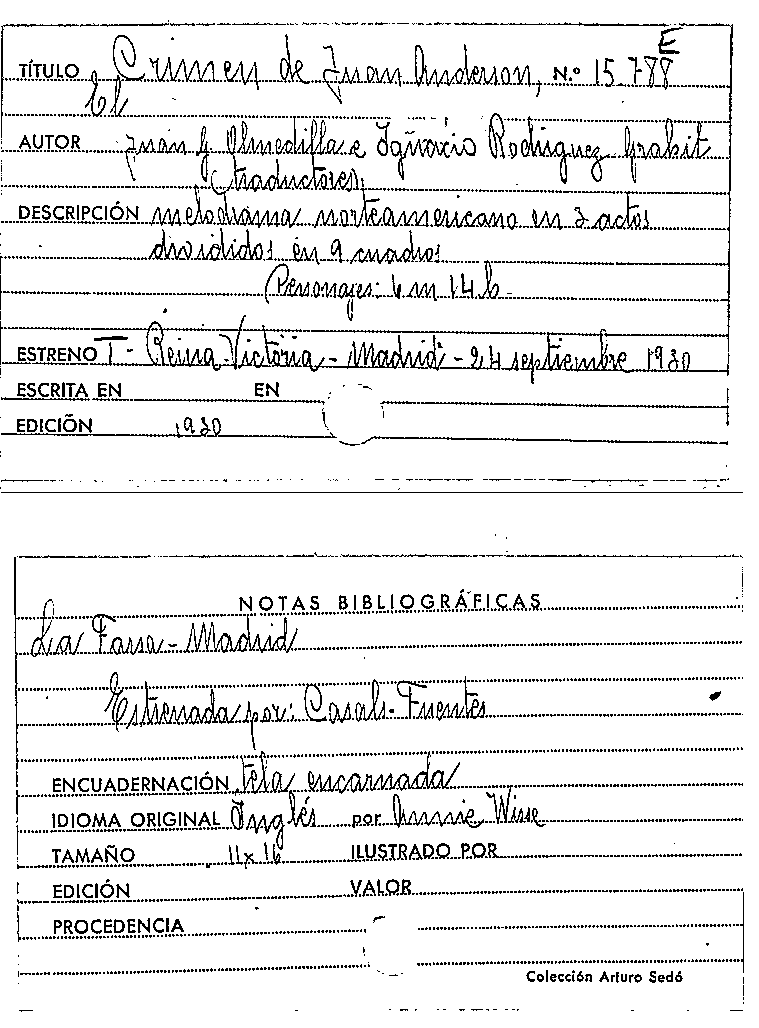 E
TÍTULO Crimen de Juan Anderson, N.º 15.788
El
AUTOR Juan G Olmedilla e Ignacio Rodriguez Grahit
(traductores)
DESCRIPCIÓN melodrama norteamericano en 3 actos
divididos en 9 cuadros
Personajes: 6 m 14 h.
ESTRENO T- Reina-Victoria - Madrid - 24 septiembre 1930
ESCRITA EN EN
EDICIÓN 1930
NOTAS BIBLIOGRÁFICAS
La Farsa - Madrid
Estrenada por: Casals-Fuentes
ENCUADERNACIÓN tela encarnada
IDIOMA ORIGINAL Inglés por Annie Wisse
TAMAÑO 11x16 ILUSTRADO POR
EDICIÓN VALOR
PROCEDENCIA
Colección Arturo Sedó